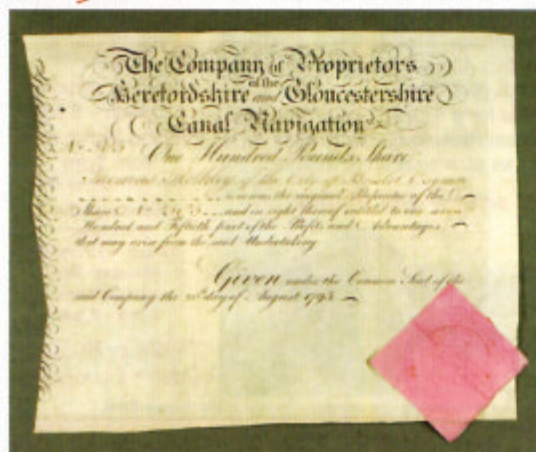 The Company of Proprietors
of the
Herefordshire and Gloucestershire
Canal Navigation
One Hundred Pounds Share
of the City of
was the original Proprietor of the
Share No and in right thereof entitled to one seven
Hundred and Fiftieth part of the Profits and Advantages
that may arise from the said Undertaking
Given under the Common Seal of the
said Company the day of August 1793